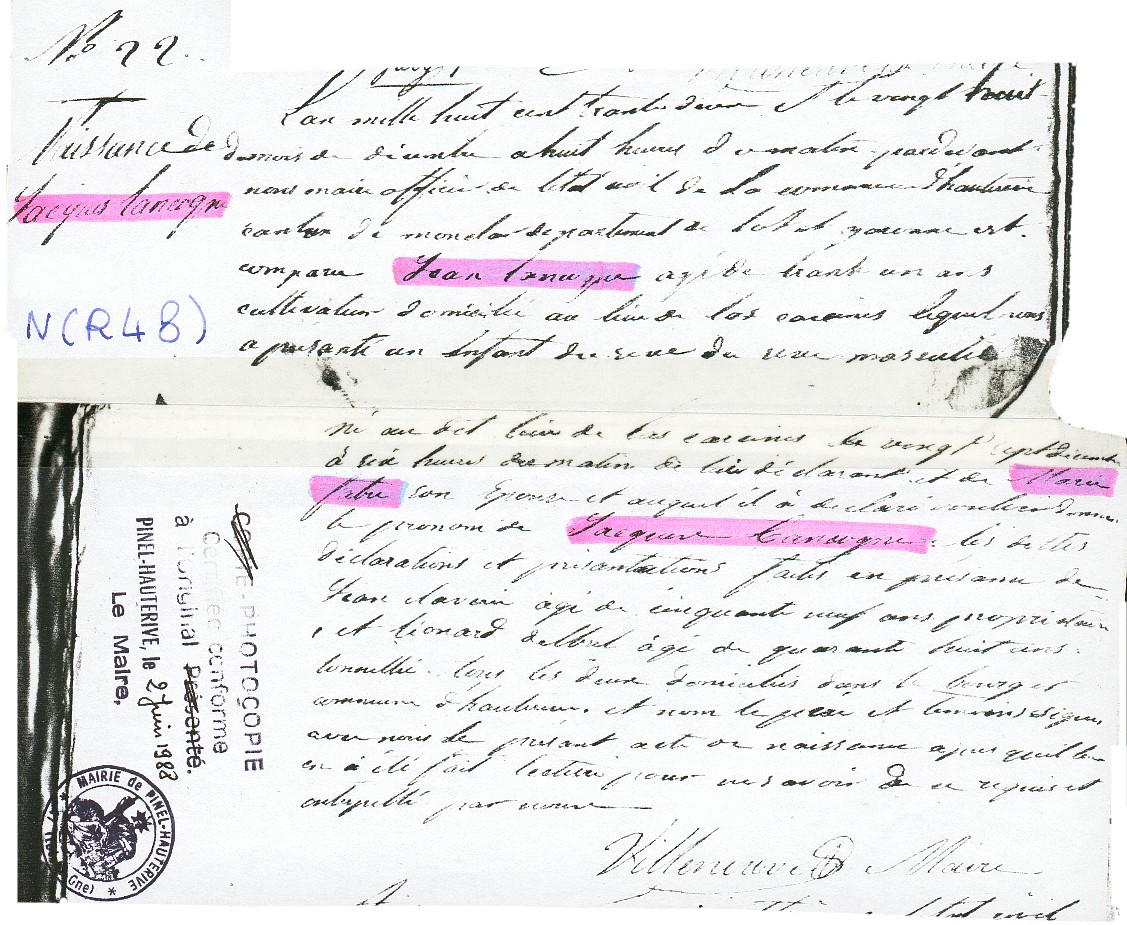 No 22.
Naissance de
Jacques Cancogne
N (R48)
L'an mille huit cent trante deux et le vingt huit
du mois de décembre a huit heures du matin pardevant
nous maire officier de l'état civil de la commune d'hauterive
canton de monclar departement de lot et garonne est
comparu Jean Cancogne agé de trant un ans
cultivateur domicilié au lieu de las cacines lequel nous
a présanté un enfant du sexe du sexe masculin
né au dit lieu de las cacines le vingt sept décembre
à six heures du matin de lui déclarant et de Marie
fabre son épouse et auquel il à déclaré vouloir donner
le prenom de Jacques Cancogne. les dittes
déclarations et présantations faites en présance de
Jean claverie âgé de cinquante neuf ans propriétaire
et léonard delbrel âgé de quarante huit ans
tonnellier tous les deux domiciliés dans le bourg et
commune d'hauterive. et nom le père et temoins signé
avec nous le présant acte de naissance apres qu'il leur
en à été fait lecture pour ne savoir de ce requis et
interpellé par nous
Villeneuve Maire
état civil
COPIE-PHOTOCOPIE
Certifiée conforme
à l'original Présenté.
PINEL-HAUTERIVE, le 2 Juin 1988
Le Maire,
MAIRIE de PINEL-HAUTERIVE